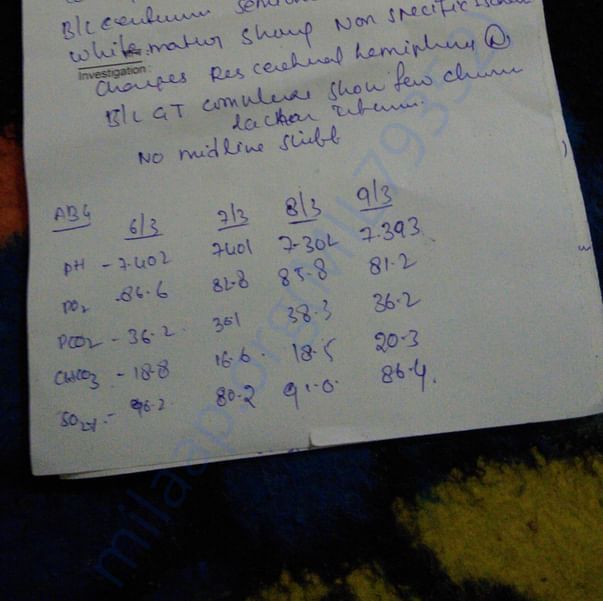 B/L centrum
white matter show Non specific
Investigation:
changes Res cerebral hemisphere (N)
B/L GT complex show few chronic
No midline shift
ABG 6/3 7/3 8/3 9/3
PH - 7.402 7.401 7.302 7.393
PO2 - 86.6 82.8 85.8 81.2
PCO2 - 36.2 36.1 38.3 36.2
CHCO3 - 18.8 16.6 18.5 20.3
SO2% - 96.2 80.2 91.0 86.4
milaap.org